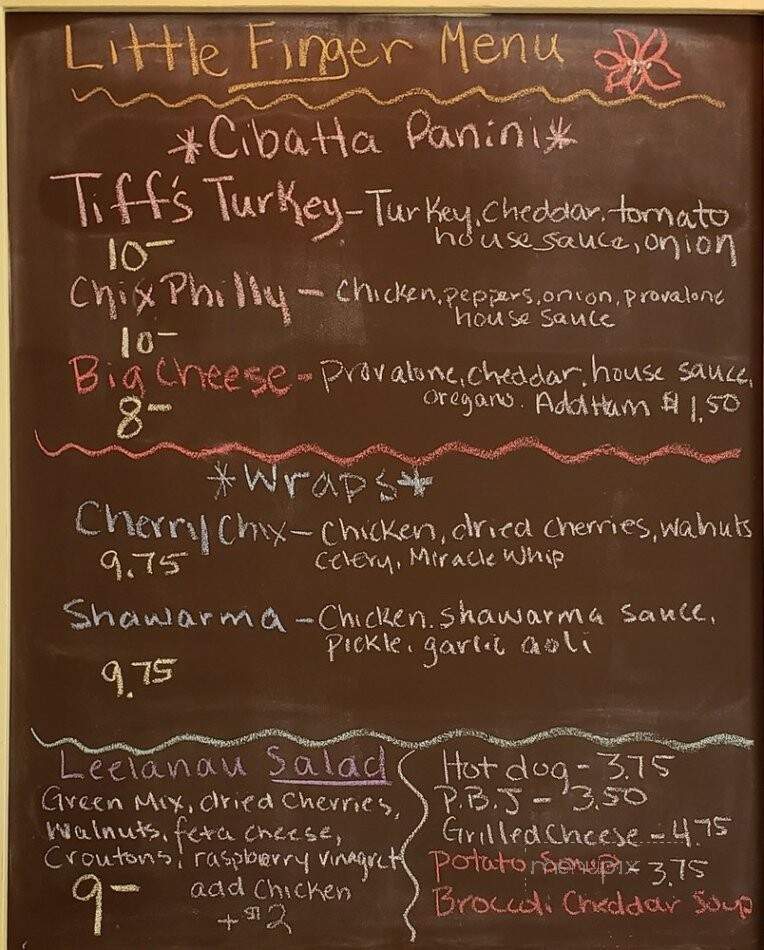 Little Finger Menu
*Cibatta Panini*
Tiff's Turkey - Turkey, cheddar, tomato
house sauce, onion
10-
Chix Philly - Chicken, peppers, onion, provalone
house sauce
10-
Big Cheese - Provalone, cheddar, house sauce,
oregano. Add Ham $1.50
8-
*Wraps*
Cherry Chix - Chicken, dried cherries, walnuts
Celery, Miracle Whip
9.75
Shawarma - Chicken, shawarma sauce,
pickle, garlic aoli
9.75
Leelanau Salad
Green Mix, dried Cherries,
Walnuts, feta cheese,
Croutons, raspberry vinagret
add Chicken
+ $2
9-
Hot dog - 3.75
P.B.J - 3.50
Grilled Cheese - 4.75
Potato Soup - 3.75
Broccoli Cheddar Soup
menupix